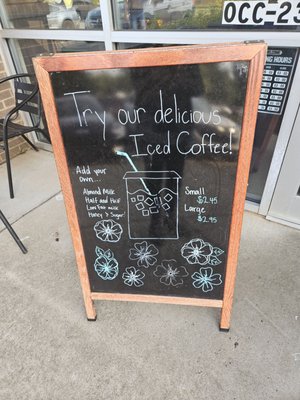 OCC-23
ING HOURS
Try our delicious
Iced Coffee!
Add your
own...
Almond Milk
Half and Half
Low fat milk
Honey > Sugar
Small
$2.45
Large
$2.95